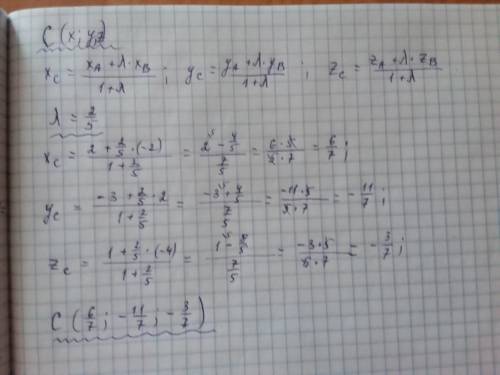 C (x; y; z)
x_C = (x_A + λ · x_B)/(1+λ) ; y_C = (y_A + λ · y_B)/(1+λ) ; z_C = (z_A + λ · z_B)/(1+λ)
λ = 2/5
x_C = (2 + 2/5 · (-2))/(1 + 2/5) = (2 - 4/5)/(7/5) = (6 · 5)/(5 · 7) = 6/7 ;
y_C = (-3 + 2/5 · 2)/(1 + 2/5) = (-3 + 4/5)/(7/5) = (-11 · 5)/(5 · 7) = - 11/7 ;
z_C = (1 + 2/5 · (-4))/(1 + 2/5) = (1 - 8/5)/(7/5) = (-3 · 5)/(5 · 7) = - 3/7 ;
C (6/7 ; - 11/7 ; - 3/7)